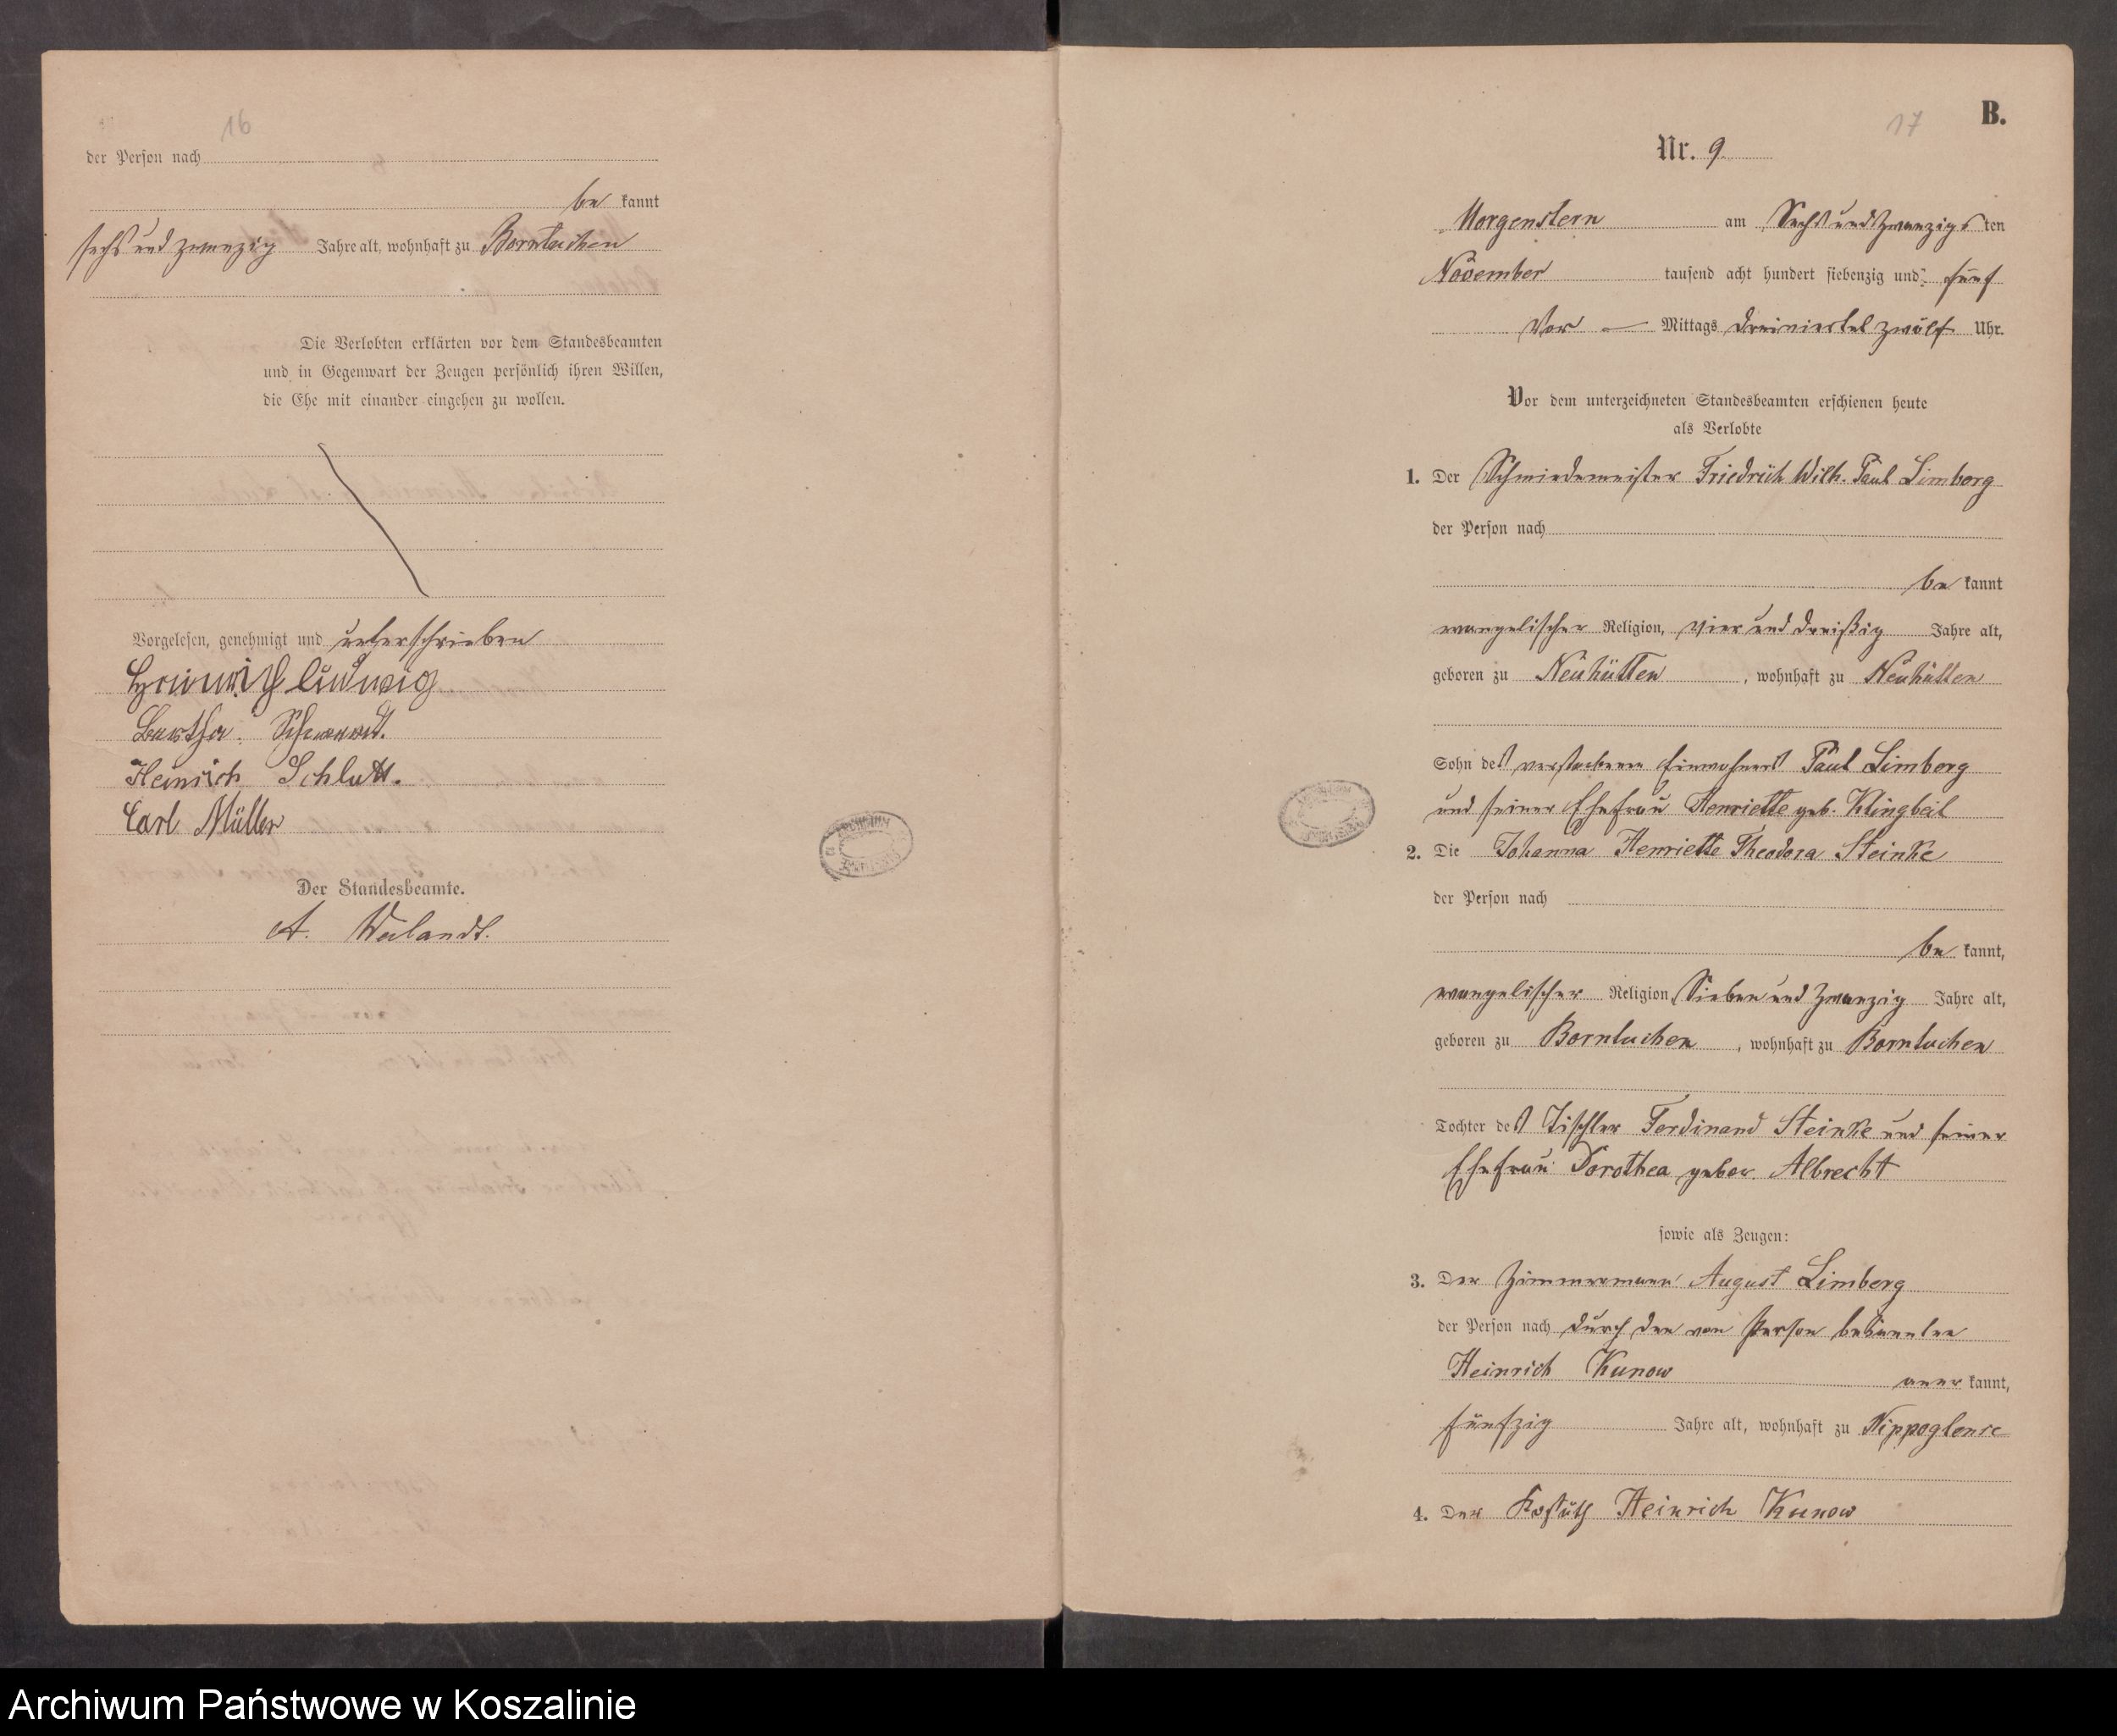 16
der Person nach
be kannt
sechs und zwanzig Jahre alt, wohnhaft zu Borntuchen
Die Verlobten erklärten vor dem Standesbeamten
und in Gegenwart der Zeugen persönlich ihren Willen,
die Ehe mit einander eingehen zu wollen.
Vorgelesen, genehmigt und unterschrieben
Heinrich Ludwig
Bertha Schwandt.
Heinrich Schlutt.
Carl Müller
Der Standesbeamte.
A. Weilandt.
17
B.
Nr. 9
Morgenstern am Sechs und zwanzigs ten
November tausend acht hundert siebenzig und fünf
Vor Mittags dreiviertel zwölf Uhr.
Vor dem unterzeichneten Standesbeamten erschienen heute
als Verlobte
1. Der Schmiedemeister Friedrich Wilh. Paul Limberg
der Person nach
be kannt
evangelischer Religion, vier und dreißig Jahre alt,
geboren zu Neuhütten, wohnhaft zu Neuhütten
Sohn des verstorbenen Einwohners Paul Limberg
und seiner Ehefrau Henriette geb. Klingbeil
2. Die Johanna Henriette Theodora Steinke
der Person nach
be kannt,
evangelischer Religion, Sieben und zwanzig Jahre alt,
geboren zu Borntuchen, wohnhaft zu Borntuchen
Tochter des Tischler Ferdinand Steinke und seiner
Ehefrau Dorothea gebor. Albrecht
sowie als Zeugen:
3. Der Zimmermann August Limberg
der Person nach durch den von Person bekannten
Heinrich Kunow
aner kannt,
fünfzig Jahre alt, wohnhaft zu Nippoglense
4. Der Heinrich Kunow
Archiwum Państwowe w Koszalinie